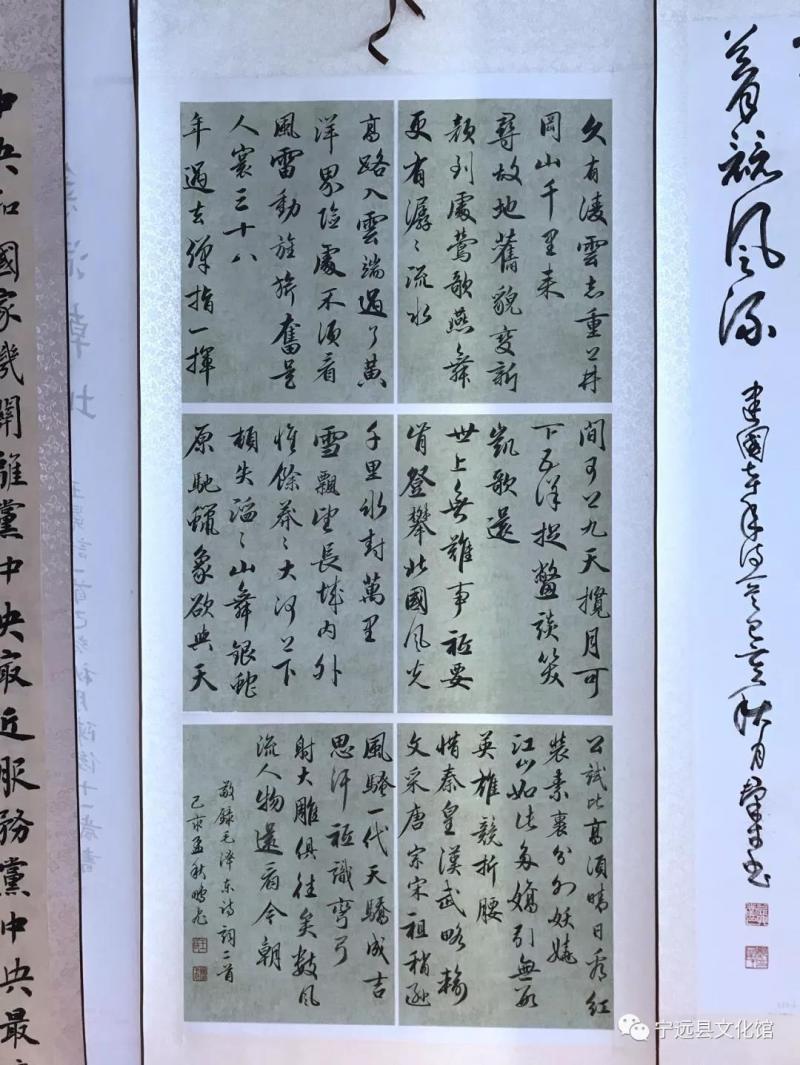 競風流
久有凌雲志重上井
岡山千里来
尋故地舊貌變新
顏到處鶯歌燕舞
更有潺〻流水
高路入雲端過了黃
洋界險處不須看
風雷動旌旗奮是
人寰三十八
年過去彈指一揮
間可上九天攬月可
下五洋捉鱉談笑
凱歌還
世上無難事祗要
肯登攀北國風光
千里冰封萬里
雪飄望長城內外
惟餘莽〻大河上下
頓失滔〻山舞銀蛇
原馳蠟象欲與天
公試比高須晴日看紅
裝素裹分外妖嬈
江山如此多嬌引無數
英雄競折腰
惜秦皇漢武略輸
文采唐宗宋祖稍遜
風騷一代天驕成吉
思汗祗識彎弓
射大雕俱往矣數風
流人物還看今朝
敬錄毛泽东诗詞二首
己亥孟秋鵬飛
中央和國家機關離黨中央最近服務黨中央最
宁远县文化馆